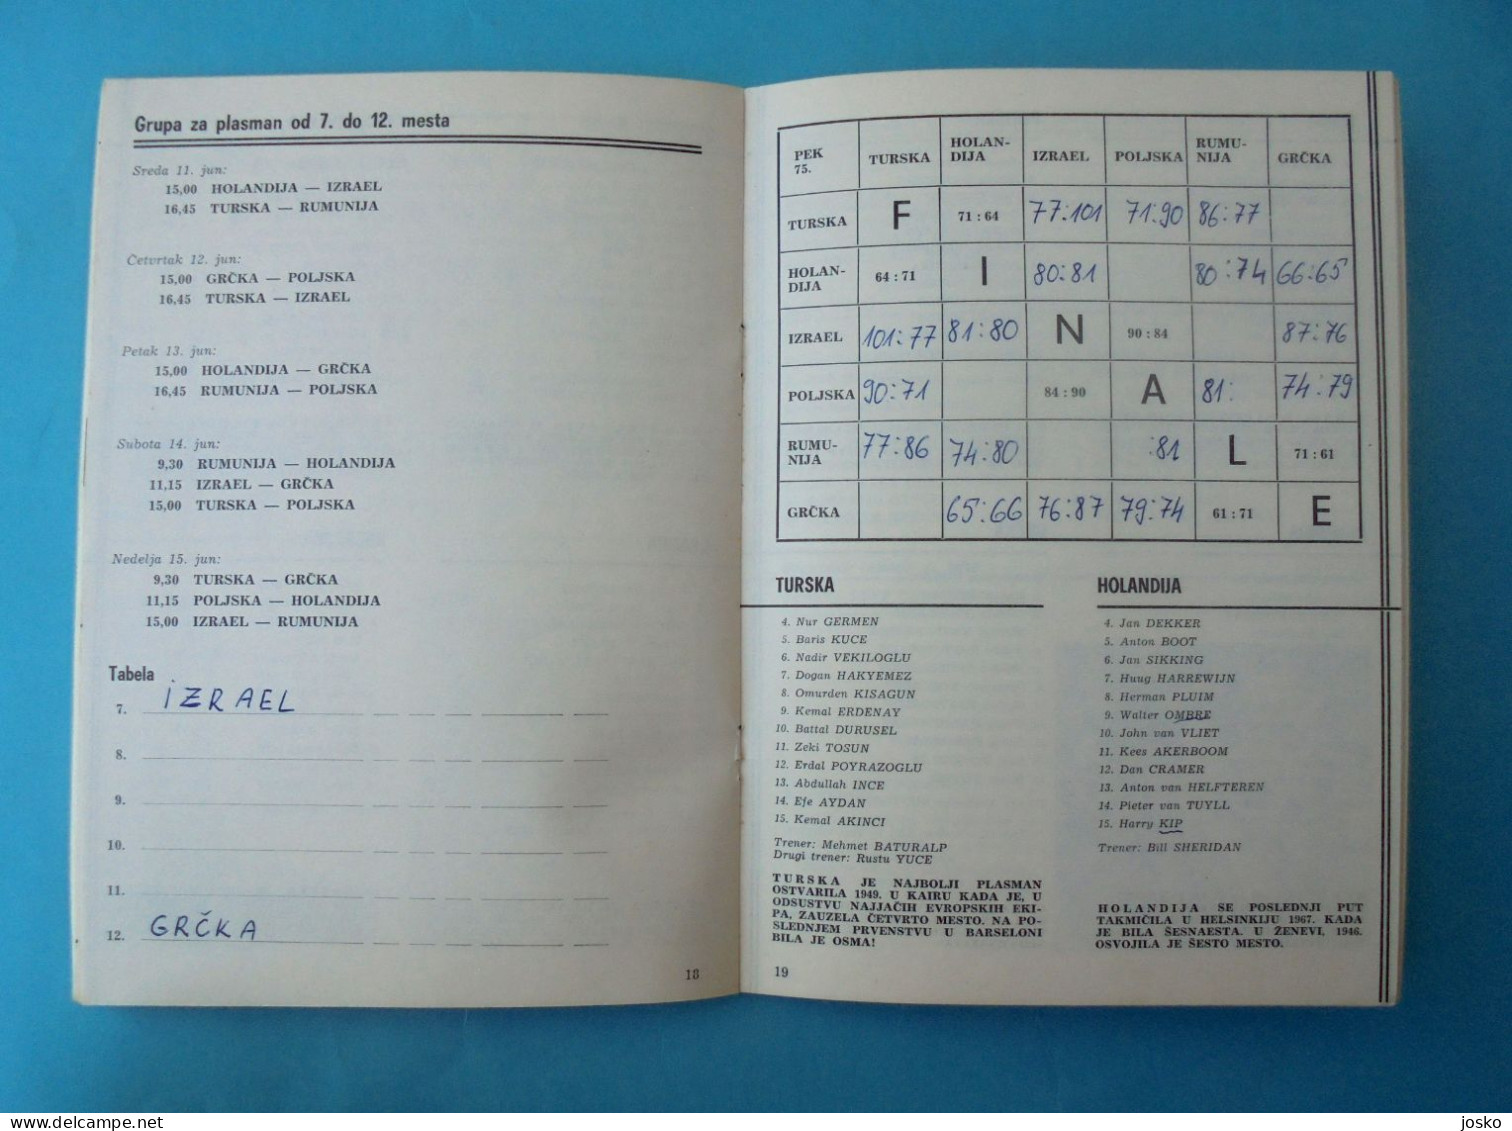 Grupa za plasman od 7. do 12. mesta
Sreda 11. jun:
15,00 HOLANDIJA — IZRAEL
16,45 TURSKA — RUMUNIJA
Četvrtak 12. jun:
15,00 GRČKA — POLJSKA
16,45 TURSKA — IZRAEL
Petak 13. jun:
15,00 HOLANDIJA — GRČKA
16,45 RUMUNIJA — POLJSKA
Subota 14. jun:
9,30 RUMUNIJA — HOLANDIJA
11,15 IZRAEL — GRČKA
15,00 TURSKA — POLJSKA
Nedelja 15. jun:
9,30 TURSKA — GRČKA
11,15 POLJSKA — HOLANDIJA
15,00 IZRAEL — RUMUNIJA
Tabela
7. IZRAEL
8.
9.
10.
11.
12. GRČKA
18
PEK 75. TURSKA HOLAN-DIJA IZRAEL POLJSKA RUMU-NIJA GRČKA
TURSKA F 71 : 64 77:101 71:90 86:77
HOLAN-DIJA 64 : 71 I 80:81 80:74 66:65
IZRAEL 101:77 81:80 N 90 : 84 87:76
POLJSKA 90:71 84 : 90 A 81: 74:79
RUMU-NIJA 77:86 74:80 :81 L 71 : 61
GRČKA 65:66 76:87 79:74 61 : 71 E
TURSKA
4. Nur GERMEN
5. Baris KUCE
6. Nadir VEKILOGLU
7. Dogan HAKYEMEZ
8. Omurden KISAGUN
9. Kemal ERDENAY
10. Battal DURUSEL
11. Zeki TOSUN
12. Erdal POYRAZOGLU
13. Abdullah INCE
14. Efe AYDAN
15. Kemal AKINCI
Trener: Mehmet BATURALP
Drugi trener: Rustu YUCE
TURSKA JE NAJBOLJI PLASMAN
OSTVARILA 1949. U KAIRU KADA JE, U
ODSUSTVU NAJJAČIH EVROPSKIH EKI-
PA, ZAUZELA ČETVRTO MESTO. NA PO-
SLEDNJEM PRVENSTVU U BARSELONI
BILA JE OSMA!
19
HOLANDIJA
4. Jan DEKKER
5. Anton BOOT
6. Jan SIKKING
7. Huug HARREWIJN
8. Herman PLUIM
9. Walter OMBRE
10. John van VLIET
11. Kees AKERBOOM
12. Dan CRAMER
13. Anton van HELFTEREN
14. Pieter van TUYLL
15. Harry KIP
Trener: Bill SHERIDAN
HOLANDIJA SE POSLEDNJI PUT
TAKMIČILA U HELSINKIJU 1967. KADA
JE BILA ŠESNAESTA. U ŽENEVI, 1946.
OSVOJILA JE ŠESTO MESTO.
delcampe.net
josko